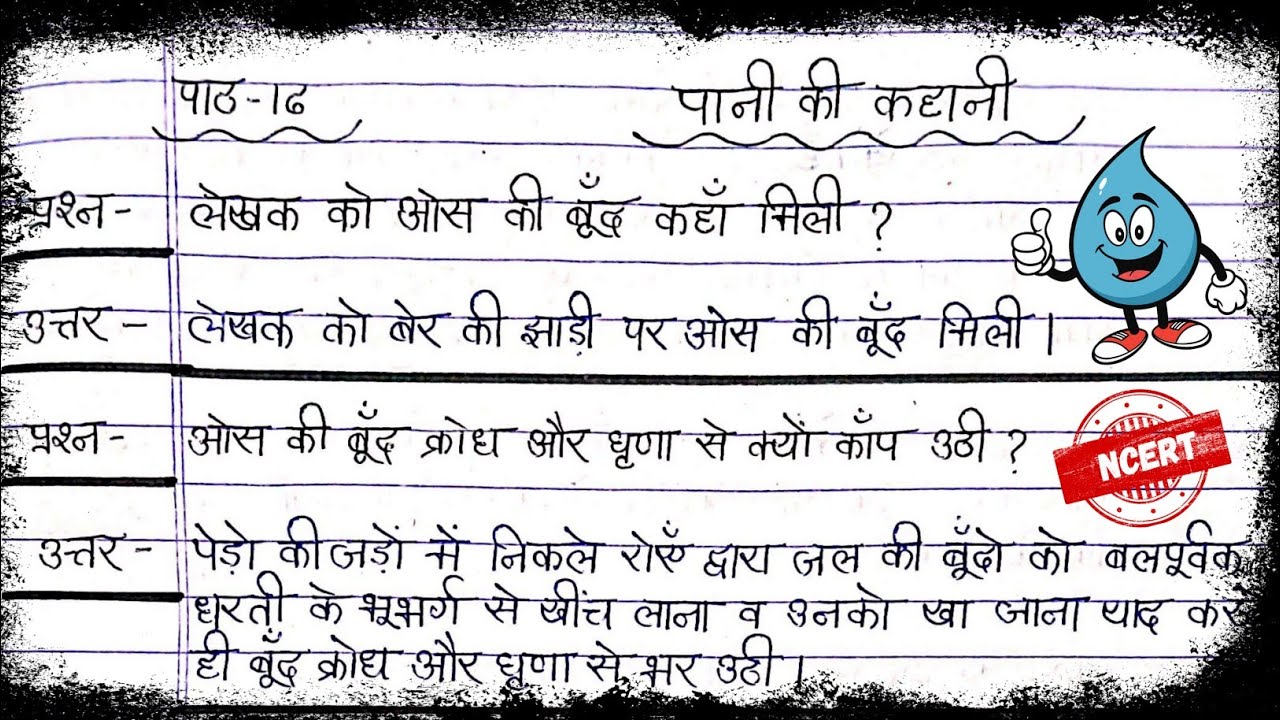 पाठ-१६ पानी की कहानी
प्रश्न- लेखक को ओस की बूँद कहाँ मिली ?
उत्तर - लेखक को बेर की झाड़ी पर ओस की बूँद मिली ।
प्रश्न- ओस की बूँद क्रोध और घृणा से क्यों काँप उठी ?
NCERT
उत्तर - पेड़ो की जड़ों में निकले रोएँ द्वारा जल की बूँदो को बलपूर्वक
धरती के भूभर्ग से खींच लाना व उनको खा जाना याद कर
ही बूँद क्रोध और घृणा से भर उठी ।